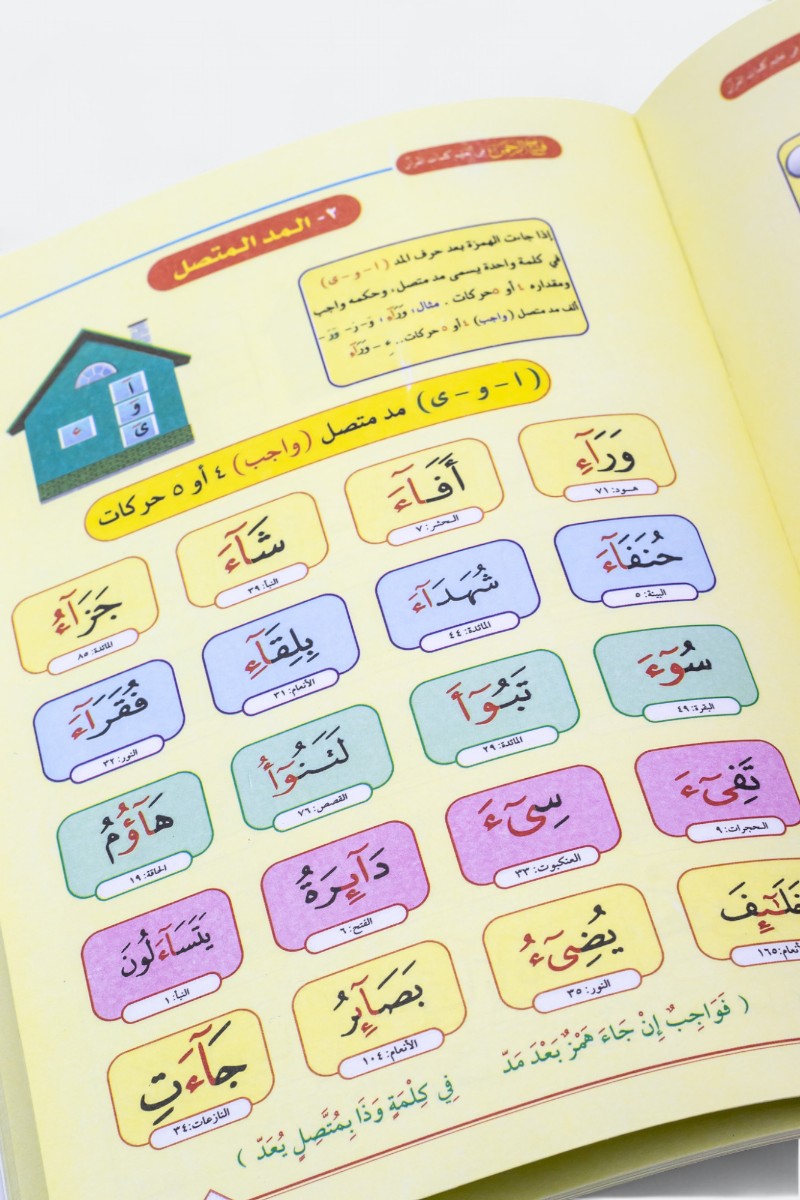 فتح الرحمن في تعليم كلمات القرآن
٢- المد المتصل
إذا جاءت الهمزة بعد حرف المد (ا - و - ى)
في كلمة واحدة يسمى مد متصل، وحكمه واجب
ومقداره ٤ أو ٥ حركات. مثال، وَرَآءِ، وَ- رَ- وَرَ-
ألف مد متصل (واجب) ٤ أو ٥ حركات.. ءِ - وَرَآءِ
آ
وٓ
ىٓ
ء
(ا - و - ى) مد متصل (واجب) ٤ أو ٥ حركات
وَرَآءِ
هـود: ٧١
أَفَآءَ
الحشر: ٧
شَآءَ
النبأ: ٣٩
جَزَآءُ
المائدة: ٨٥
حُنَفَآءَ
البينة: ٥
شُهَدَآءَ
المائدة: ٤٤
بِلِقَآءِ
الأنعام: ٣١
فُقَرَآءَ
النور: ٣٢
سُوٓءَ
البقرة: ٤٩
تَبُوٓأَ
المائدة: ٢٩
لَتَنُوٓأُ
القصص: ٧٦
هَآؤُمُ
الحاقة: ١٩
تَفِىٓءَ
الحجرات: ٩
سِىٓءَ
العنكبوت: ٣٣
دَآئِرَةُ
الفتح: ٦
يَتَسَآءَلُونَ
النبأ: ١
يُضِىٓءُ
النور: ٣٥
بَصَآئِرُ
الأنعام: ١٠٤
جَآءَتِ
النازعات: ٣٤
( فَوَاجِبٌ إِنْ جَاءَ هَمْزٌ بَعْدَ مَدّ
فِي كِلْمَةٍ وَذَا بِمُتَّصِلٍ يُعَدّ )